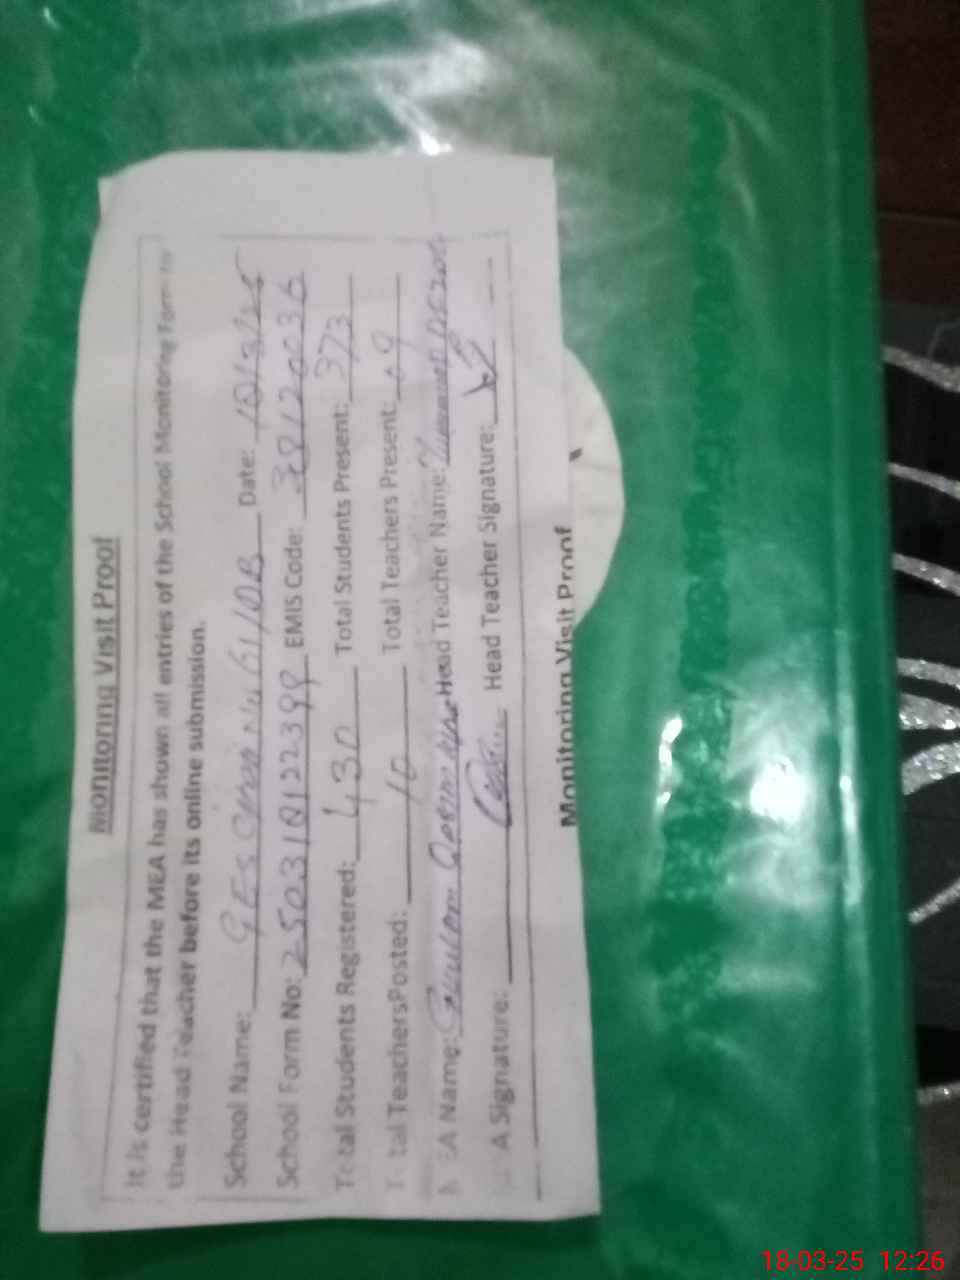 Monitoring Visit Proof
It is certified that the MEA has shown all entries of the School Monitoring Form to
the Head Teacher before its online submission.
School Name: GES 61/DB Date: 18/3/25
School Form No: 250318122399 EMIS Code: 38120036
Total Students Registered: 430 Total Students Present: 373
Total TeachersPosted: 10 Total Teachers Present: 09
MEA Name: Ghulam Head Teacher Name:
MEA Signature: Head Teacher Signature:
Monitoring Visit Proof
18-03-25 12:26